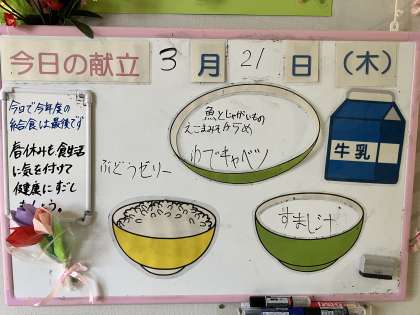 今日の献立 3月21日(木)
今日で今年度の
給食は最後です
春休みも食生活
に気を付けて
健康にすごし
ましょう。
魚とじゃがいもの
えごまみそがらめ
ゆでキャベツ
ぶどうゼリー
牛乳
すまし汁